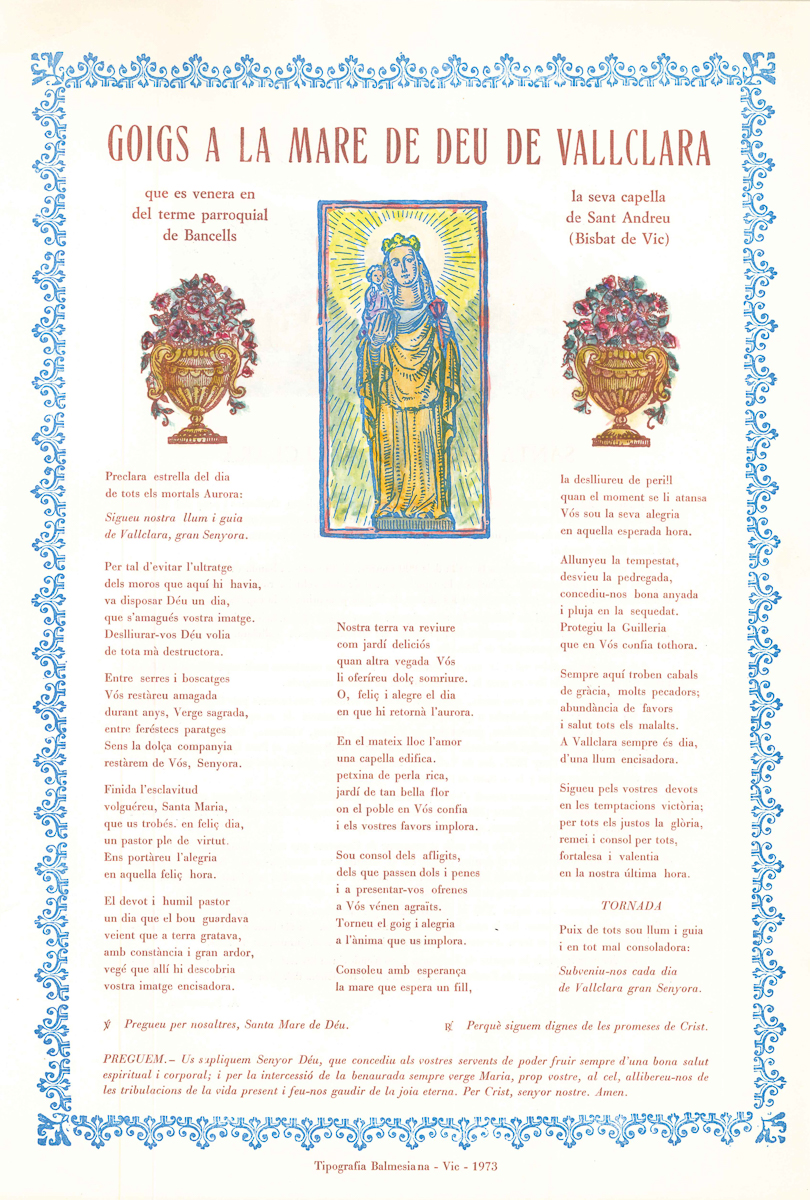 GOIGS A LA MARE DE DEU DE VALLCLARA
que es venera en
del terme parroquial
de Bancells
la seva capella
de Sant Andreu
(Bisbat de Vic)
Preclara estrella del dia
de tots els mortals Aurora:
Sigueu nostra llum i guia
de Vallclara, gran Senyora.
Per tal d'evitar l'ultratge
dels moros que aquí hi havia,
va disposar Déu un dia,
que s'amagués vostra imatge.
Deslliurar-vos Déu volia
de tota mà destructora.
Entre serres i boscatges
Vós restàreu amagada
durant anys, Verge sagrada,
entre feréstecs paratges
Sens la dolça companyia
restàrem de Vós, Senyora.
Finida l'esclavitud
volguéreu, Santa Maria,
que us trobés. en feliç dia,
un pastor ple de virtut.
Ens portàreu l'alegria
en aquella feliç hora.
El devot i humil pastor
un dia que el bou guardava
veient que a terra gratava,
amb constància i gran ardor,
vegé que allí hi descobria
vostra imatge encisadora.
Nostra terra va reviure
com jardí deliciós
quan altra vegada Vós
li oferíreu dolç somriure.
O, feliç i alegre el dia
en que hi retornà l'aurora.
En el mateix lloc l'amor
una capella edifica.
petxina de perla rica,
jardí de tan bella flor
on el poble en Vós confia
i els vostres favors implora.
Sou consol dels afligits,
dels que passen dols i penes
i a presentar-vos ofrenes
a Vós vénen agraïts.
Torneu el goig i alegria
a l'ànima que us implora.
Consoleu amb esperança
la mare que espera un fill,
la deslliureu de perill
quan el moment se li atansa
Vós sou la seva alegria
en aquella esperada hora.
Allunyeu la tempestat,
desvieu la pedregada,
concediu-nos bona anyada
i pluja en la sequedat.
Protegiu la Guilleria
que en Vós confia tothora.
Sempre aquí troben cabals
de gràcia, molts pecadors;
abundància de favors
i salut tots els malalts.
A Vallclara sempre és dia,
d'una llum encisadora.
Sigueu pels vostres devots
en les temptacions victòria;
per tots els justos la glòria,
remei i consol per tots,
fortalesa i valentia
en la nostra última hora.
TORNADA
Puix de tots sou llum i guia
i en tot mal consoladora:
Subveniu-nos cada dia
de Vallclara gran Senyora.
℣ Pregueu per nosaltres, Santa Mare de Déu.
℟ Perquè siguem dignes de les promeses de Crist.
PREGUEM.– Us supliquem Senyor Déu, que concediu als vostres servents de poder fruir sempre d'una bona salut
espiritual i corporal; i per la intercessió de la benaurada sempre verge Maria, prop vostre, al cel, allibereu-nos de
les tribulacions de la vida present i feu-nos gaudir de la joia eterna. Per Crist, senyor nostre. Amen.
Tipografia Balmesiana - Vic - 1973